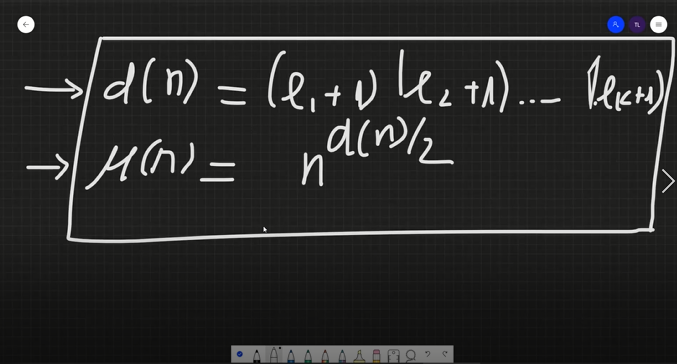 TL
→ d(n) = (e₁+1)(e₂+1)...(eₖ+1)
→ μ(n) = n^{d(n)/2}